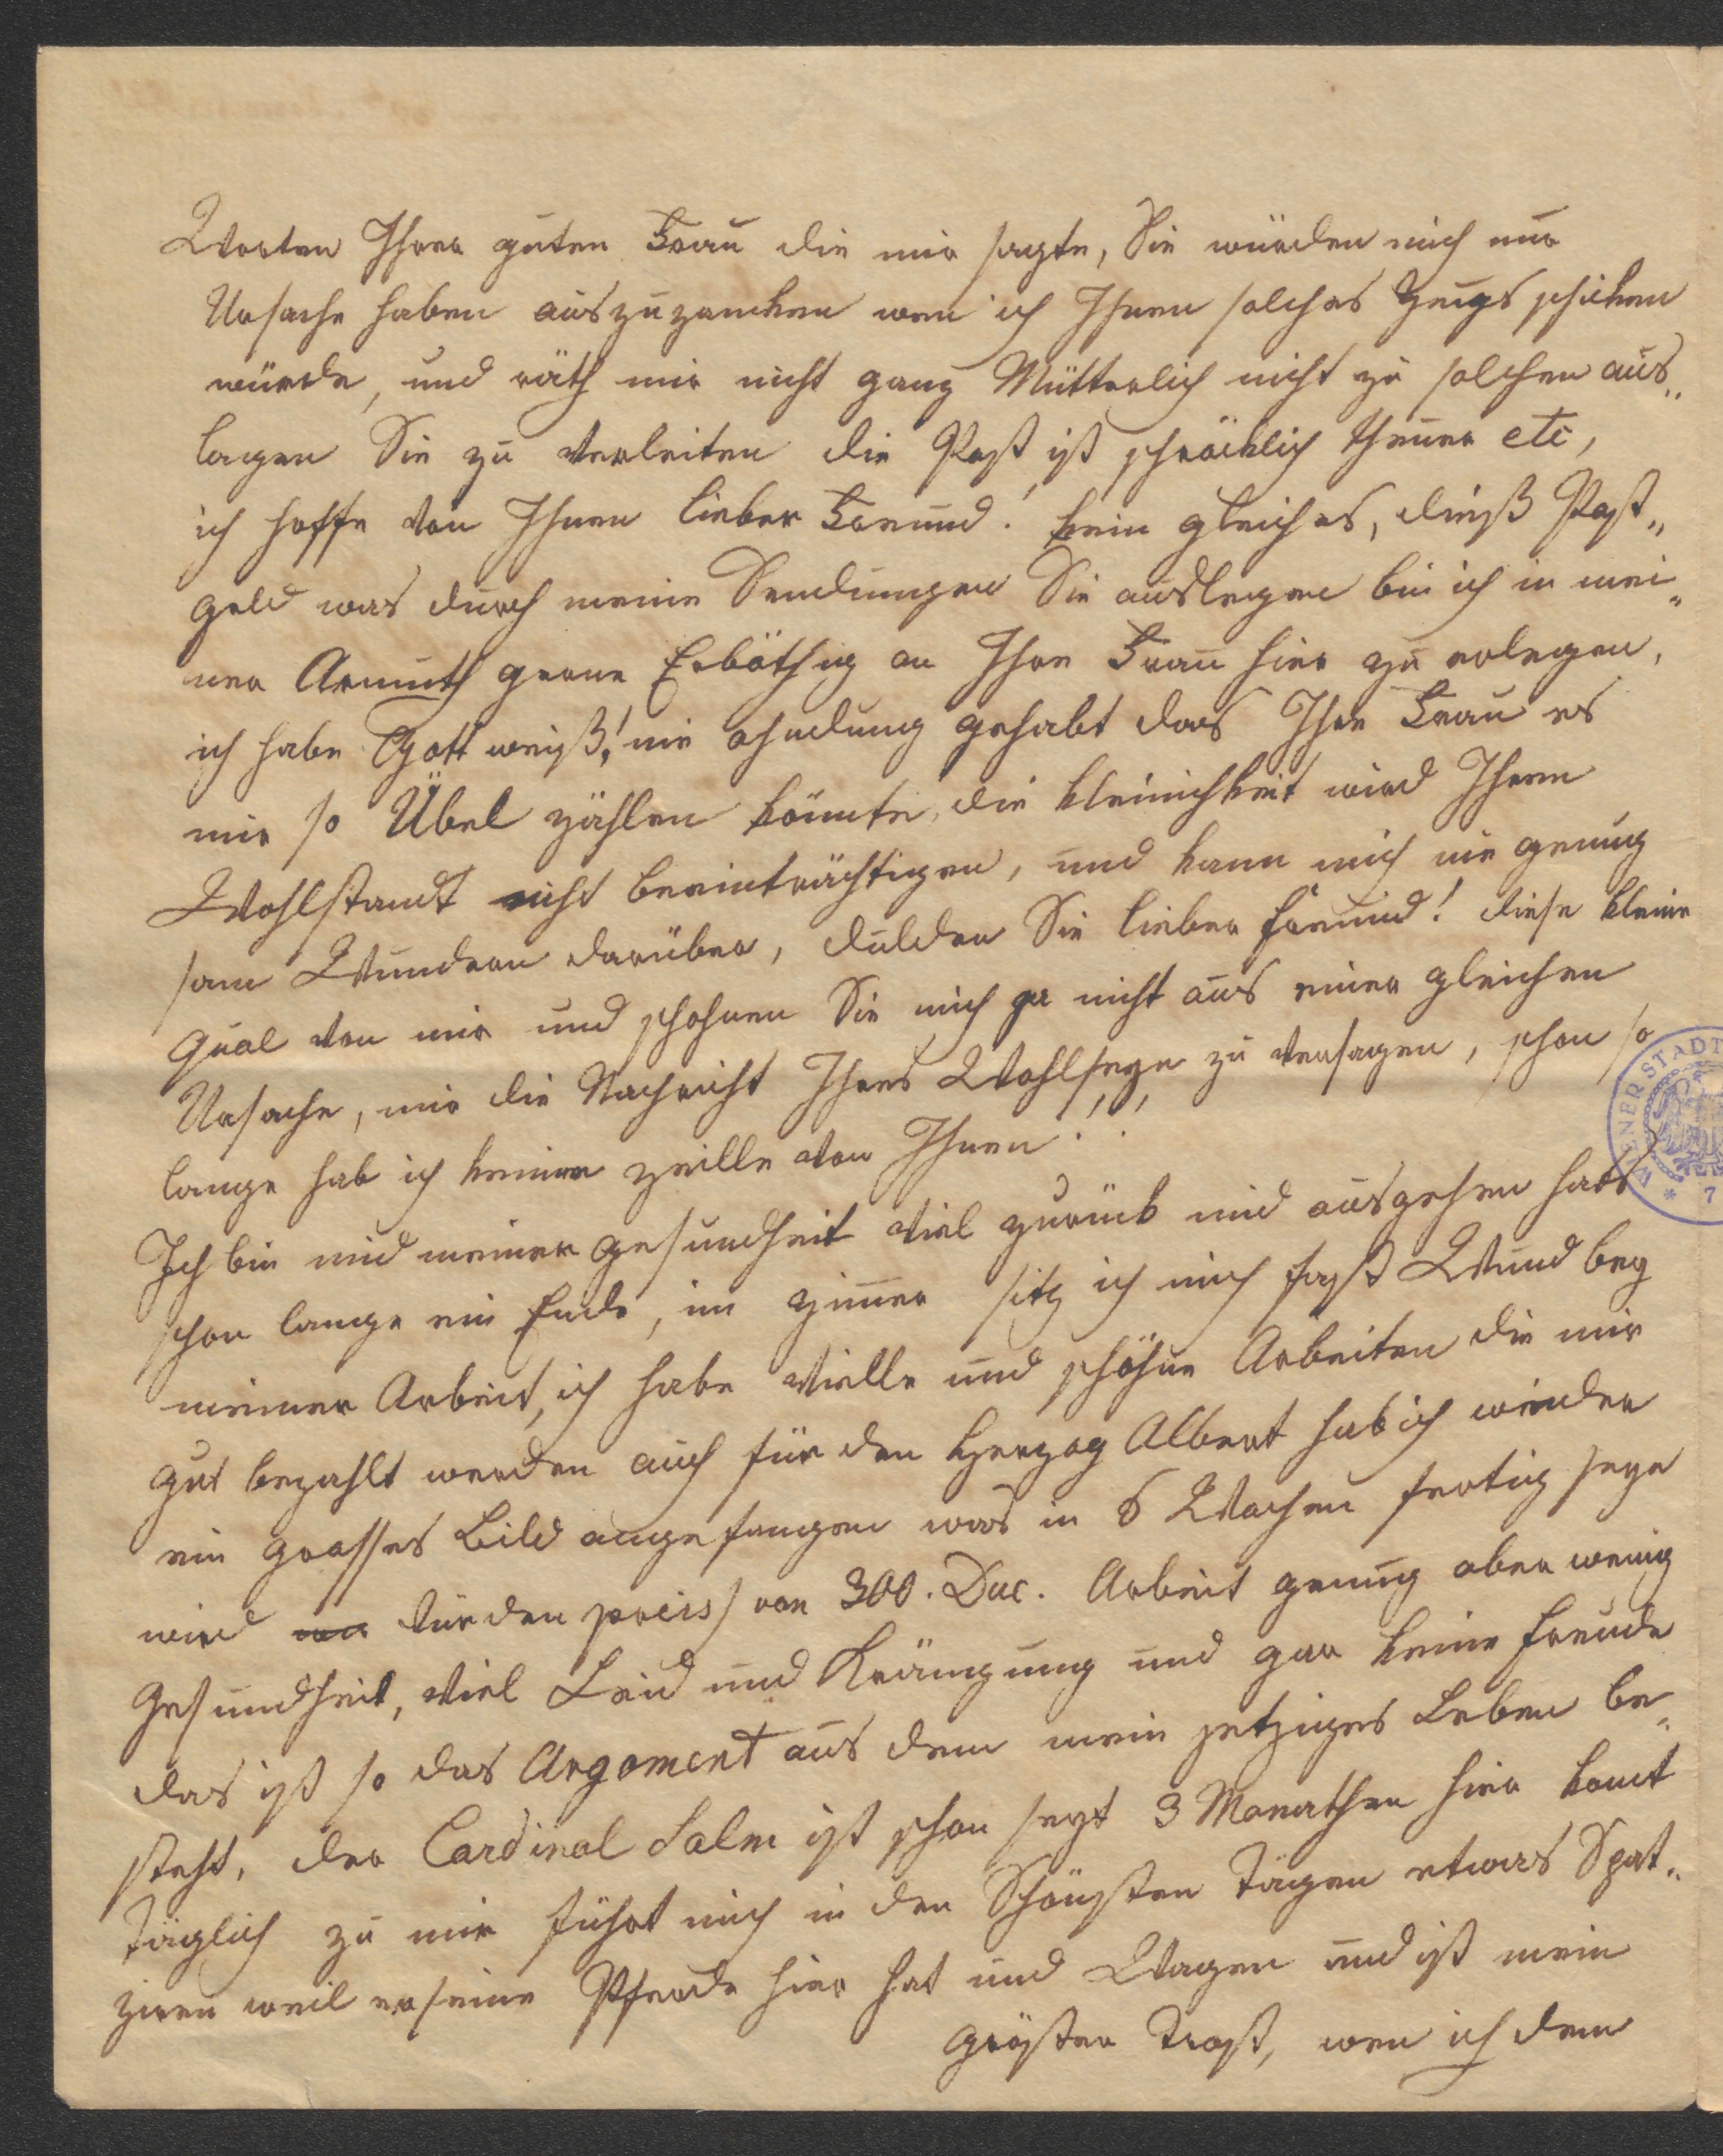 Worten Ihrer guten Frau die mir sagte, Sie würden mich nur
Ursache haben auszuzancken wen ich Ihnen solches Zeugs schicken
würde, und räth mir nicht ganz Mütterlich nicht zu solchen aus„
lagen Sie zu verleiten die Post ist schröcklich theuer etc,
ich hoffe von Ihnen lieber Freund! kein gleiches, dieß Post„
geld was durch meine Sendungen Sie auslegen bin ich in mei„
ner Armuth gerne Erböthig an Ihre Frau hier zu erlegen,
ich habe Gott weiß! nie ahndung gehabt das Ihre Frau es
mir so Übel zählen könnte, die kleinichkeit wird Ihren
Wohlstandt nicht beeinträchtigen, und kann mich nie genug
sam Wundern darüber, dulden Sie lieber freund! diese kleine
qual von mir und schohnen Sie mich ja nicht aus einer gleichen
Ursache, mir die Nachricht Ihres Wohlseyn zu versagen, schon so
lange hab ich keinen zeille von Ihnen!!
Ich bin mid meiner gesundheit viel zurück mid ausgehen hats
schon lange ein Ende, im zimer sitz ich mich fast Wund bey
meiner Arbeit, ich habe vielle und schöhne Arbeiten die mir
gut bezahlt werden auch für den Herzog Albert hab ich wieder
ein grosses bild angefangen was in 6 Wochen fertig seyn
wird für den preiss von 300. Duc. Arbeit genug aber wenig
Gesundheit, viel Leid und Kränguug und gar keine freude
das ist so das Argoment aus dem mein jetziges Leben be„
steht, der Cardinal Salm ist schon seyt 3 Monathen hier komt
täglich zu mir führt mich in den Schönsten tägen etwas Spat„
ziren weil er seine Pferde hier hat und Wagen und ist mein
gröster trost, wen ich dem
WIENER STADT
* 7